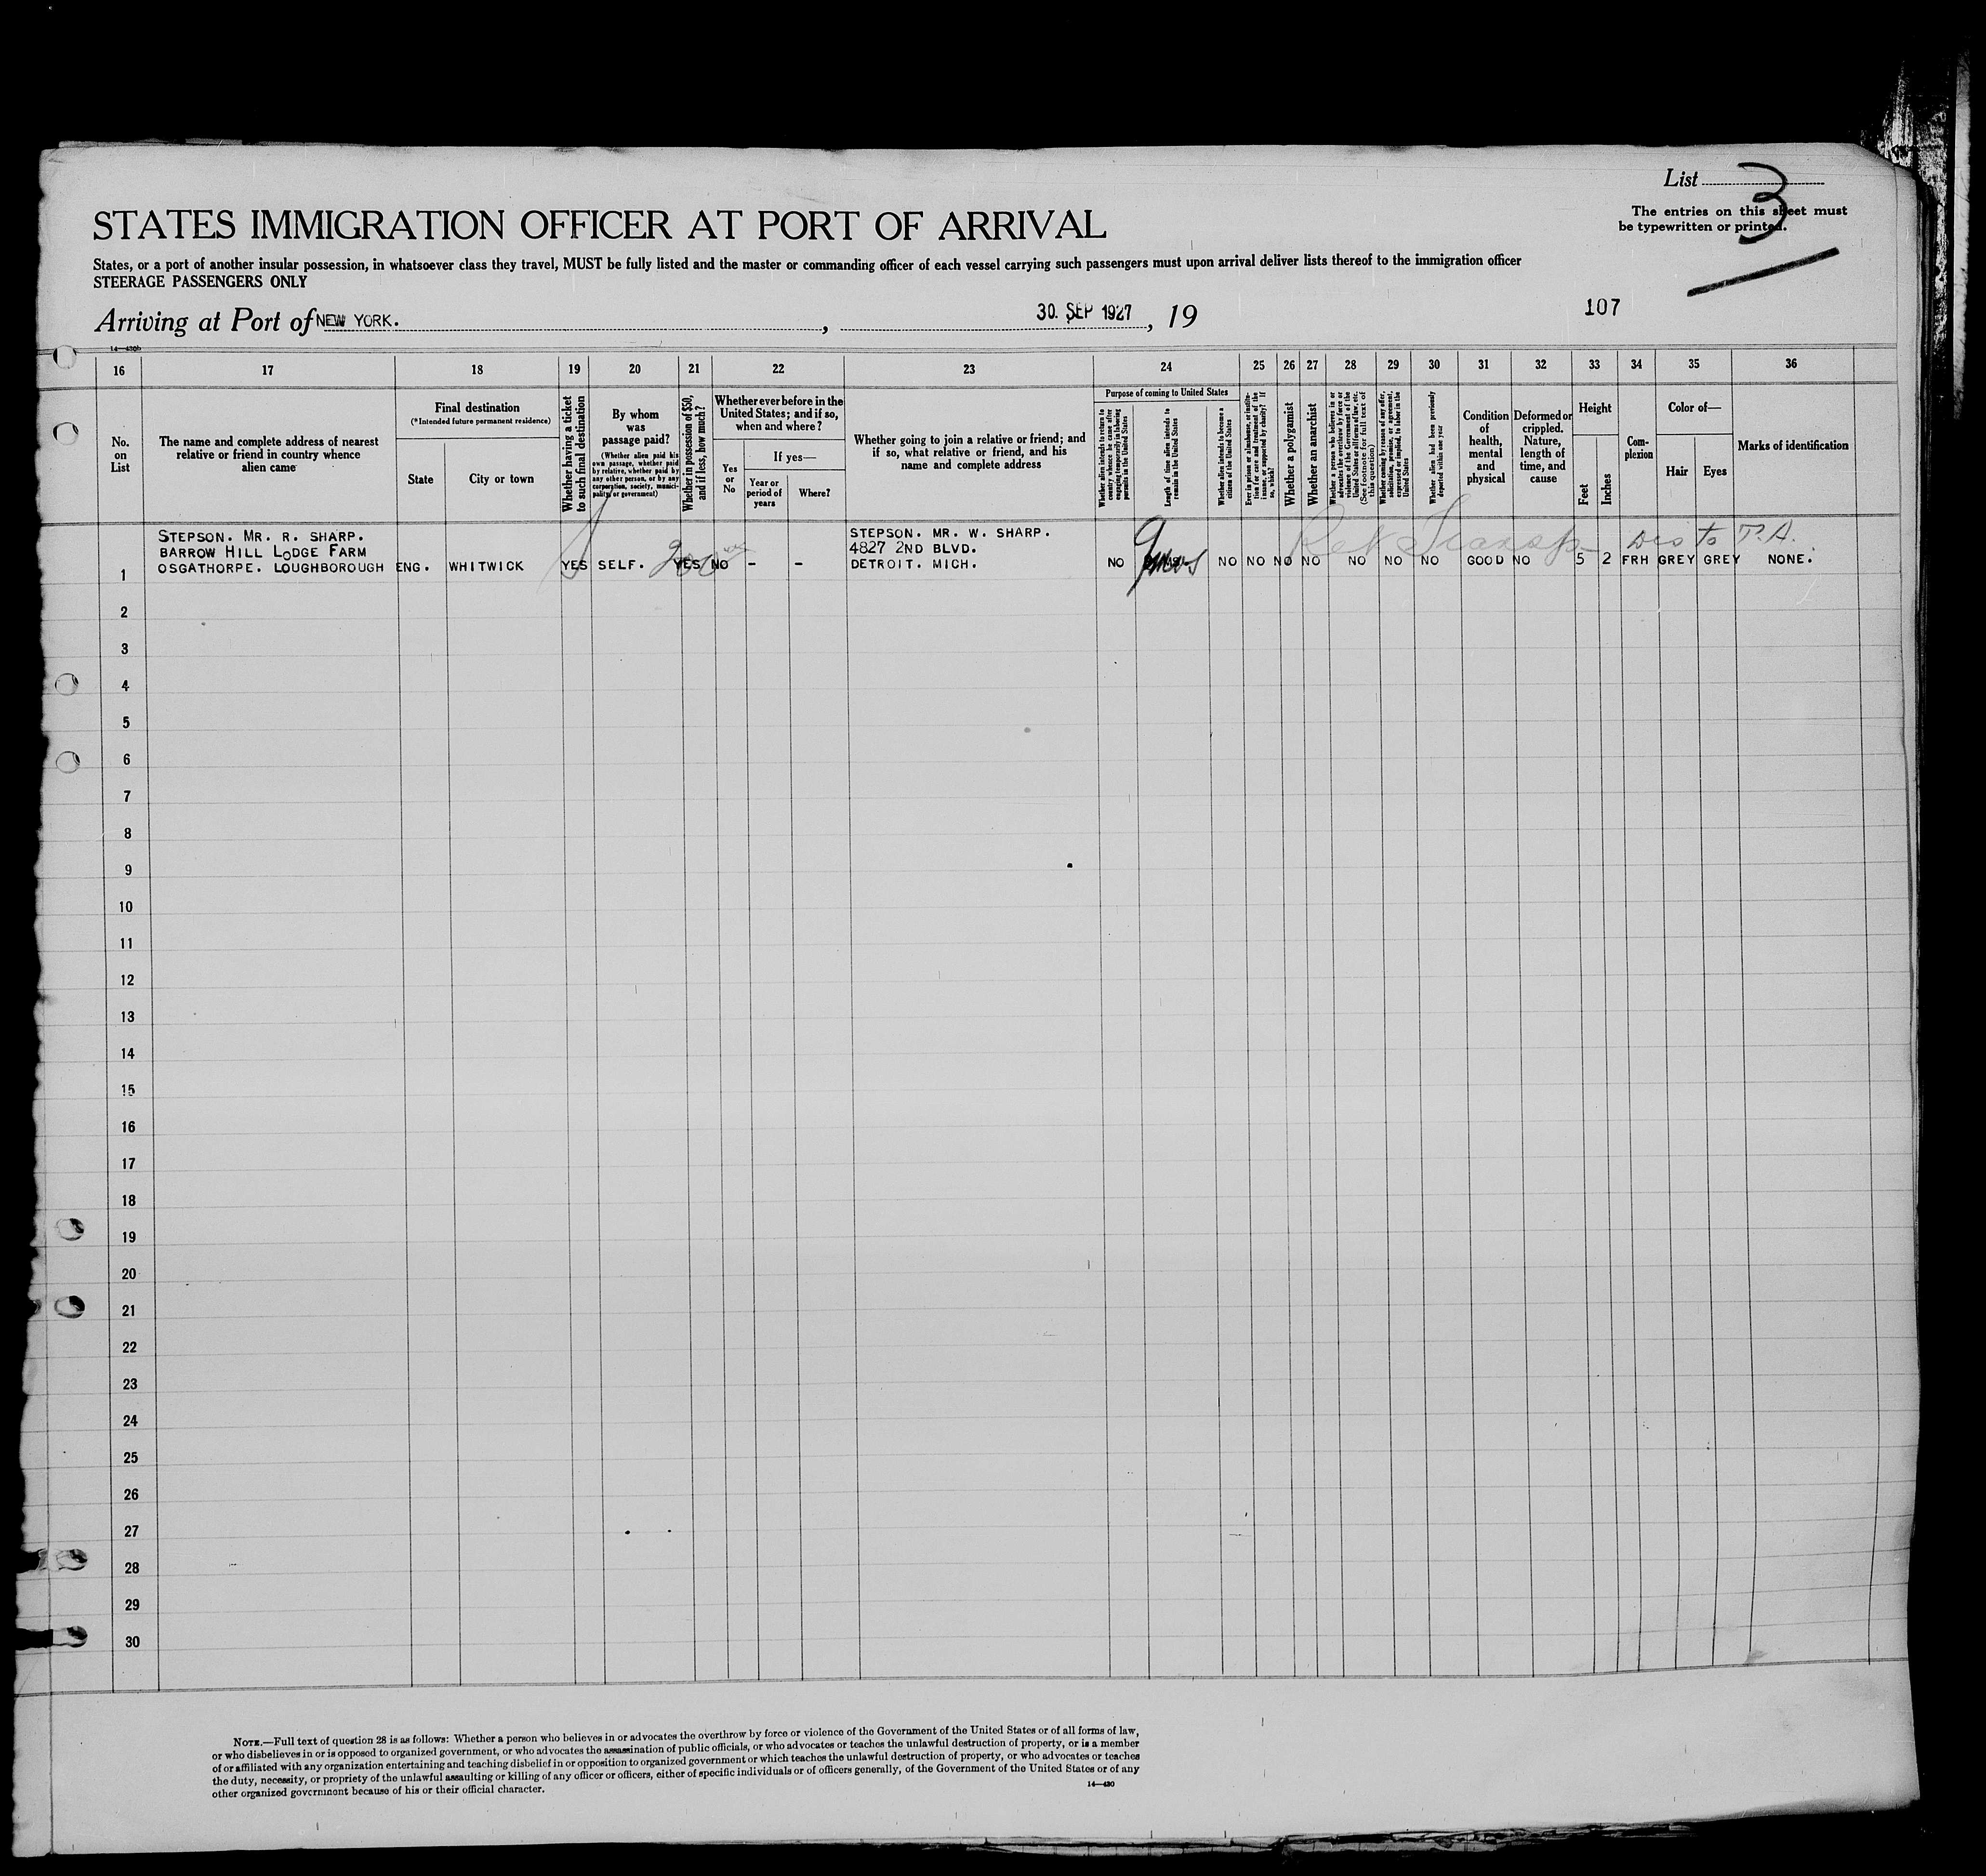 List 3
The entries on this sheet must
be typewritten or printed.
STATES IMMIGRATION OFFICER AT PORT OF ARRIVAL
States, or a port of another insular possession, in whatsoever class they travel, MUST be fully listed and the master or commanding officer of each vessel carrying such passengers must upon arrival deliver lists thereof to the immigration officer
STEERAGE PASSENGERS ONLY
Arriving at Port of NEW YORK. , 30. SEP 1927 , 19
107
14—430b
16 17 18 19 20 21 22 23 24 25 26 27 28 29 30 31 32 33 34 35 36
No.
on
List
The name and complete address of nearest
relative or friend in country whence
alien came
Final destination
(*Intended future permanent residence)
State
City or town
Whether having a ticket
to such final destination
By whom
was
passage paid?
(Whether alien paid his
own passage, whether paid
by relative, whether paid by
any other person, or by any
corporation, society, munici-
pality, or government)
Whether in possession of $50,
and if less, how much?
Whether ever before in the
United States; and if so,
when and where?
Yes
or
No
If yes—
Year or
period of
years
Where?
Whether going to join a relative or friend; and
if so, what relative or friend, and his
name and complete address
Purpose of coming to United States
Whether alien intends to return to
country whence he came after
engaging temporarily in laboring
pursuits in the United States
Length of time alien intends to
remain in the United States
Whether alien intends to become a
citizen of the United States
Ever in prison or almshouse, or institu-
tion for care and treatment of the
insane, or supported by charity? If
so, which?
Whether a polygamist
Whether an anarchist
Whether a person who believes in or
advocates the overthrow by force or
violence of the Government of the
United States or all forms of law, etc.
(See footnote for full text of
this question)
Whether coming by reason of any offer,
solicitation, promise, or agreement,
expressed or implied, to labor in the
United States
Whether alien had been previously
deported within one year
Condition
of
health,
mental
and
physical
Deformed or
crippled.
Nature,
length of
time, and
cause
Height
Feet
Inches
Com-
plexion
Color of—
Hair
Eyes
Marks of identification
STEPSON. MR. R. SHARP.
BARROW HILL LODGE FARM
OSGATHORPE. LOUGHBOROUGH
ENG. WHITWICK YES SELF. 200 YES NO - -
STEPSON. MR. W. SHARP.
4827 2ND BLVD.
DETROIT. MICH.
Dis to T.A.
1 NO NO NO NO NO NO NO NO GOOD NO 5 2 FRH GREY GREY NONE.
2
3
4
5
6
7
8
9
10
11
12
13
14
15
16
17
18
19
20
21
22
23
24
25
26
27
28
29
30
NOTE.—Full text of question 28 is as follows: Whether a person who believes in or advocates the overthrow by force or violence of the Government of the United States or of all forms of law,
or who disbelieves in or is opposed to organized government, or who advocates the assassination of public officials, or who advocates or teaches the unlawful destruction of property, or is a member
of or affiliated with any organization entertaining and teaching disbelief in or opposition to organized government or which teaches the unlawful destruction of property, or who advocates or teaches
the duty, necessity, or propriety of the unlawful assaulting or killing of any officer or officers, either of specific individuals or of officers generally, of the Government of the United States or of any
other organized government because of his or their official character.
14—430